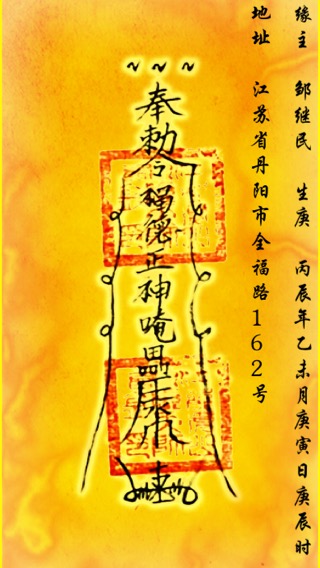 缘主 邹继民 生庚 丙辰年乙未月庚寅日庚辰时
地址 江苏省丹阳市全福路162号
奉勅令福德正神唵